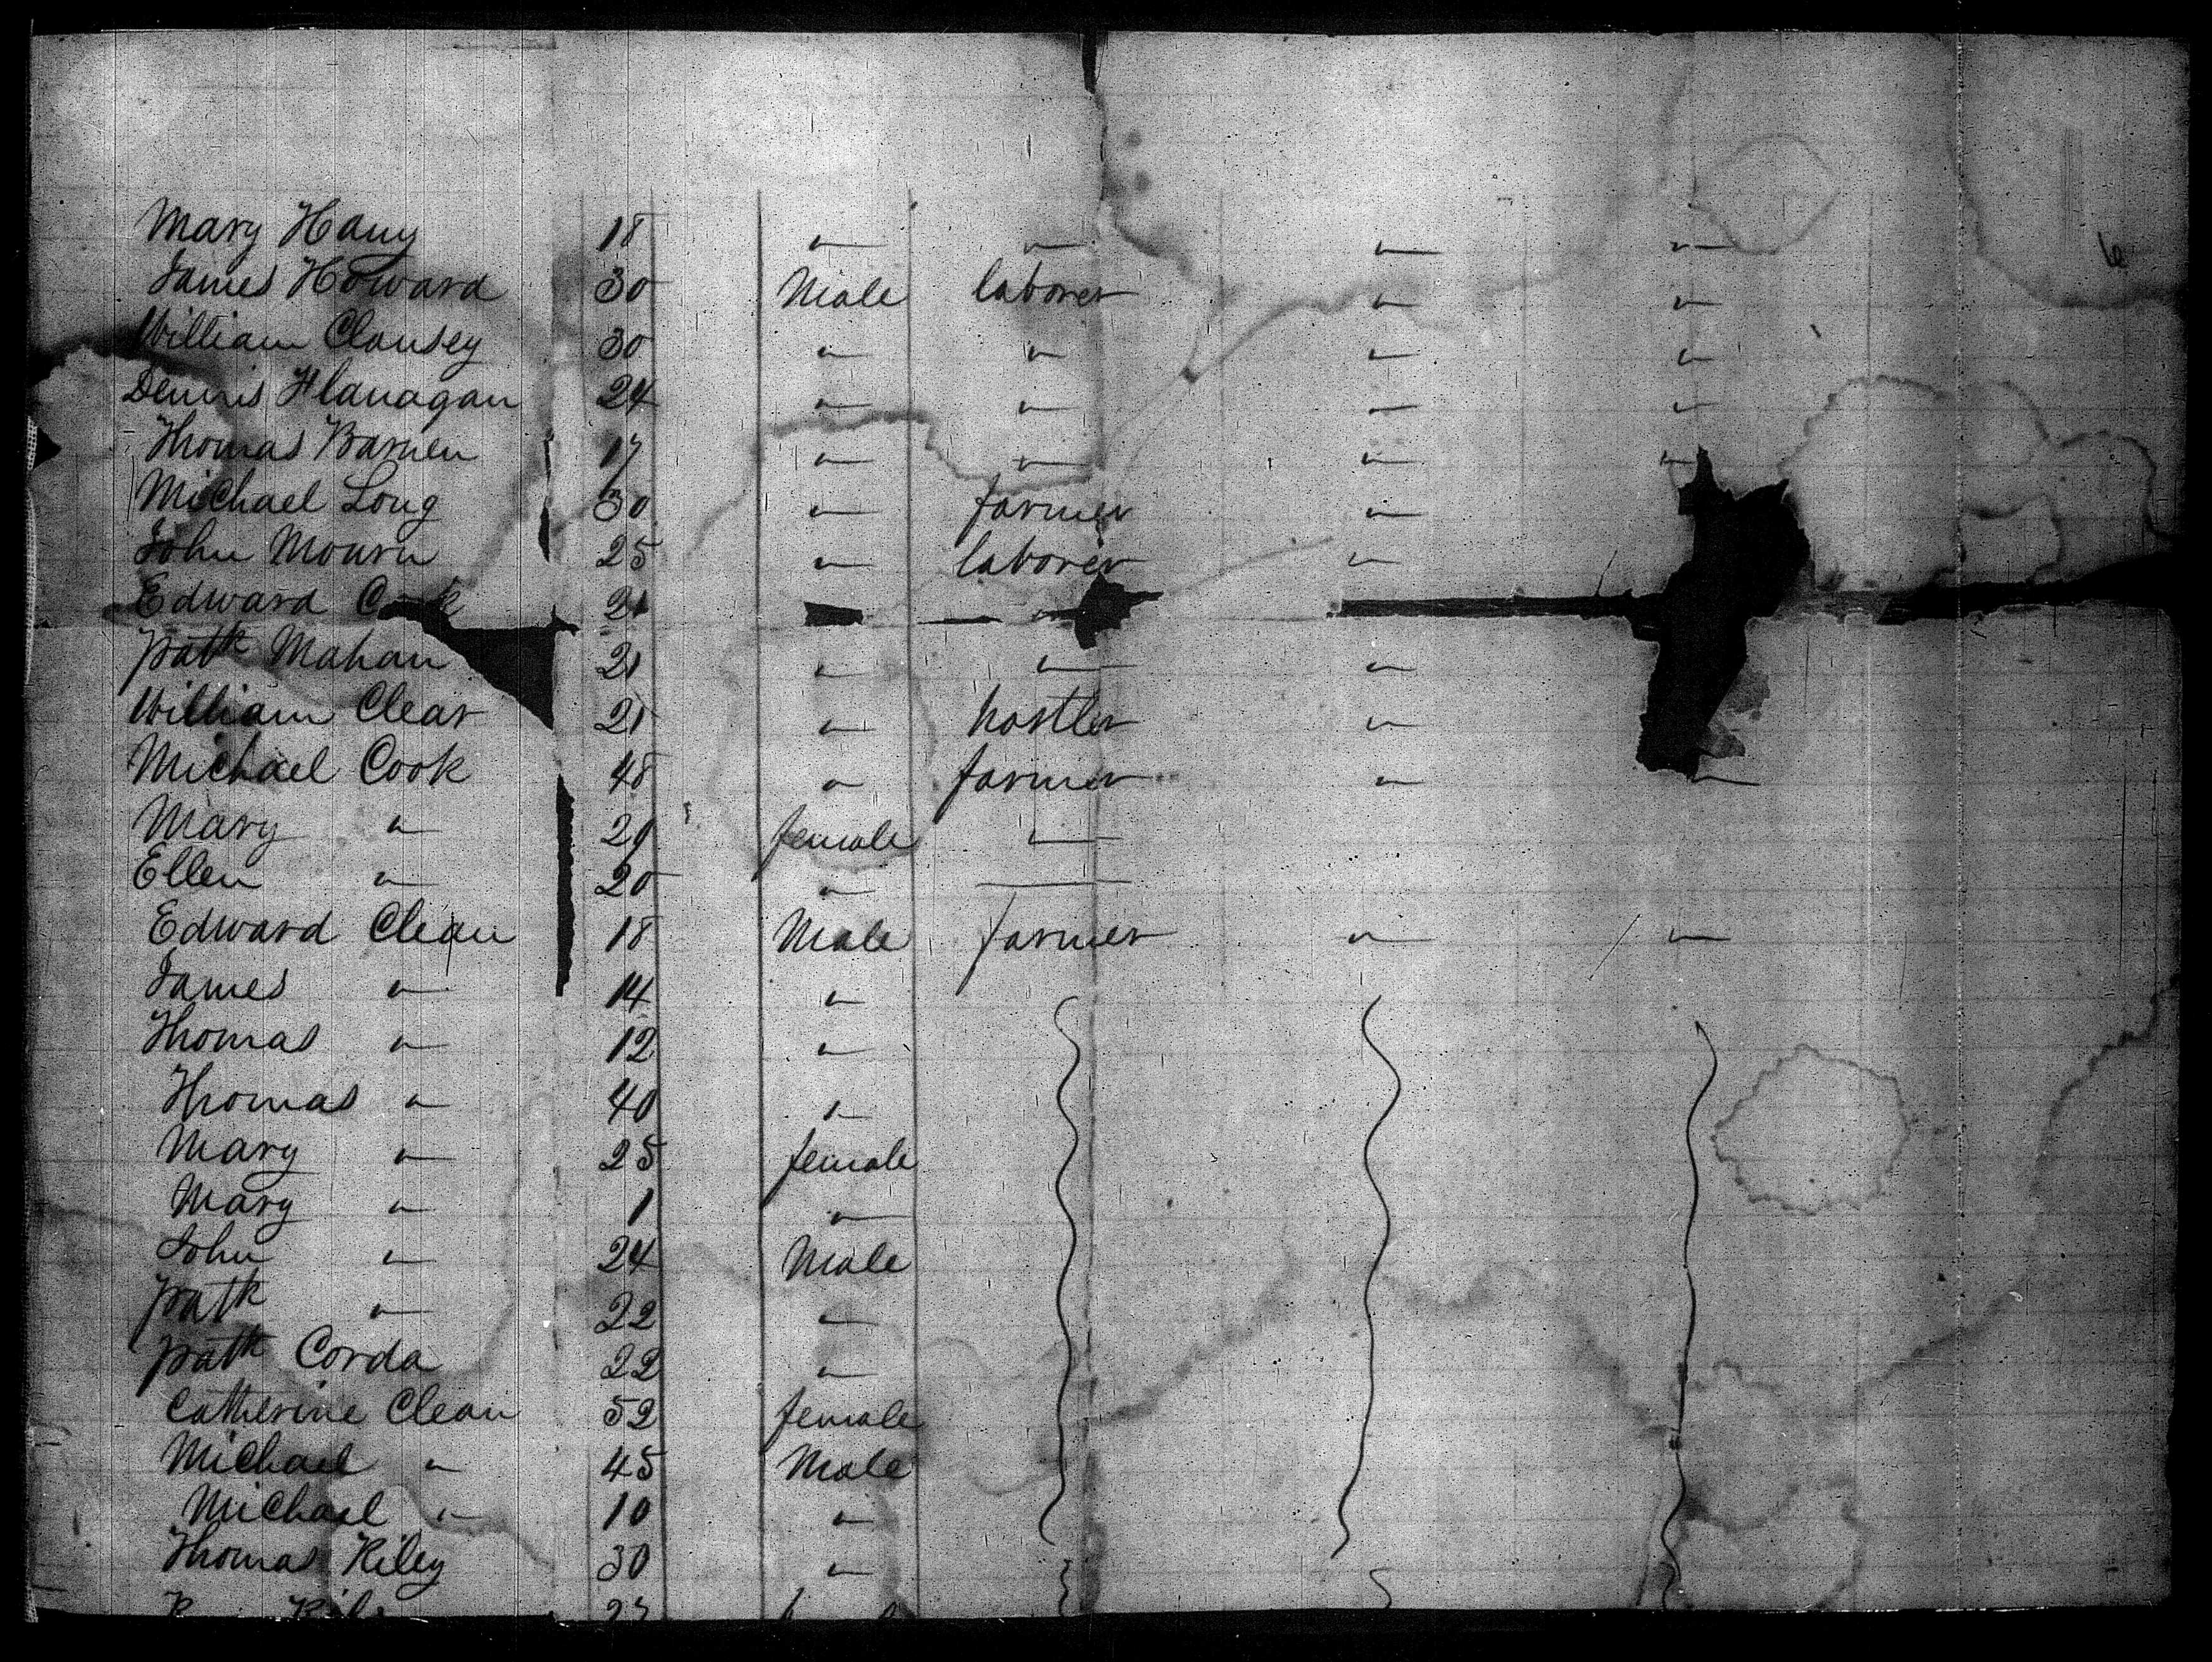 Mary Hany 18 " " " "
James Howard 30 Male laborer " " 6
William Clansey 30 " " " "
Dennis Flanagan 24 " " — "
Thomas Barnen 17 " " " "
Michael Long 30 " farmer "
John Mourn 25 " laborer "
Edward Cook 21
Patk Mahan 21 " " "
William Clear 21 " hostler "
Michael Cook 48 " farmer " "
Mary " 20 female "
Ellen " 20 " —
Edward Clean 18 Male farmer " "
James " 14 "
Thomas " 12 "
Thomas " 40 "
Mary " 25 female
Mary " 1 "
John " 24 Male
Patk " 22 "
Patk Corda 22 "
Catherine Clean 52 female
Michael " 45 Male
Michael " 10 "
Thomas Riley 30 "